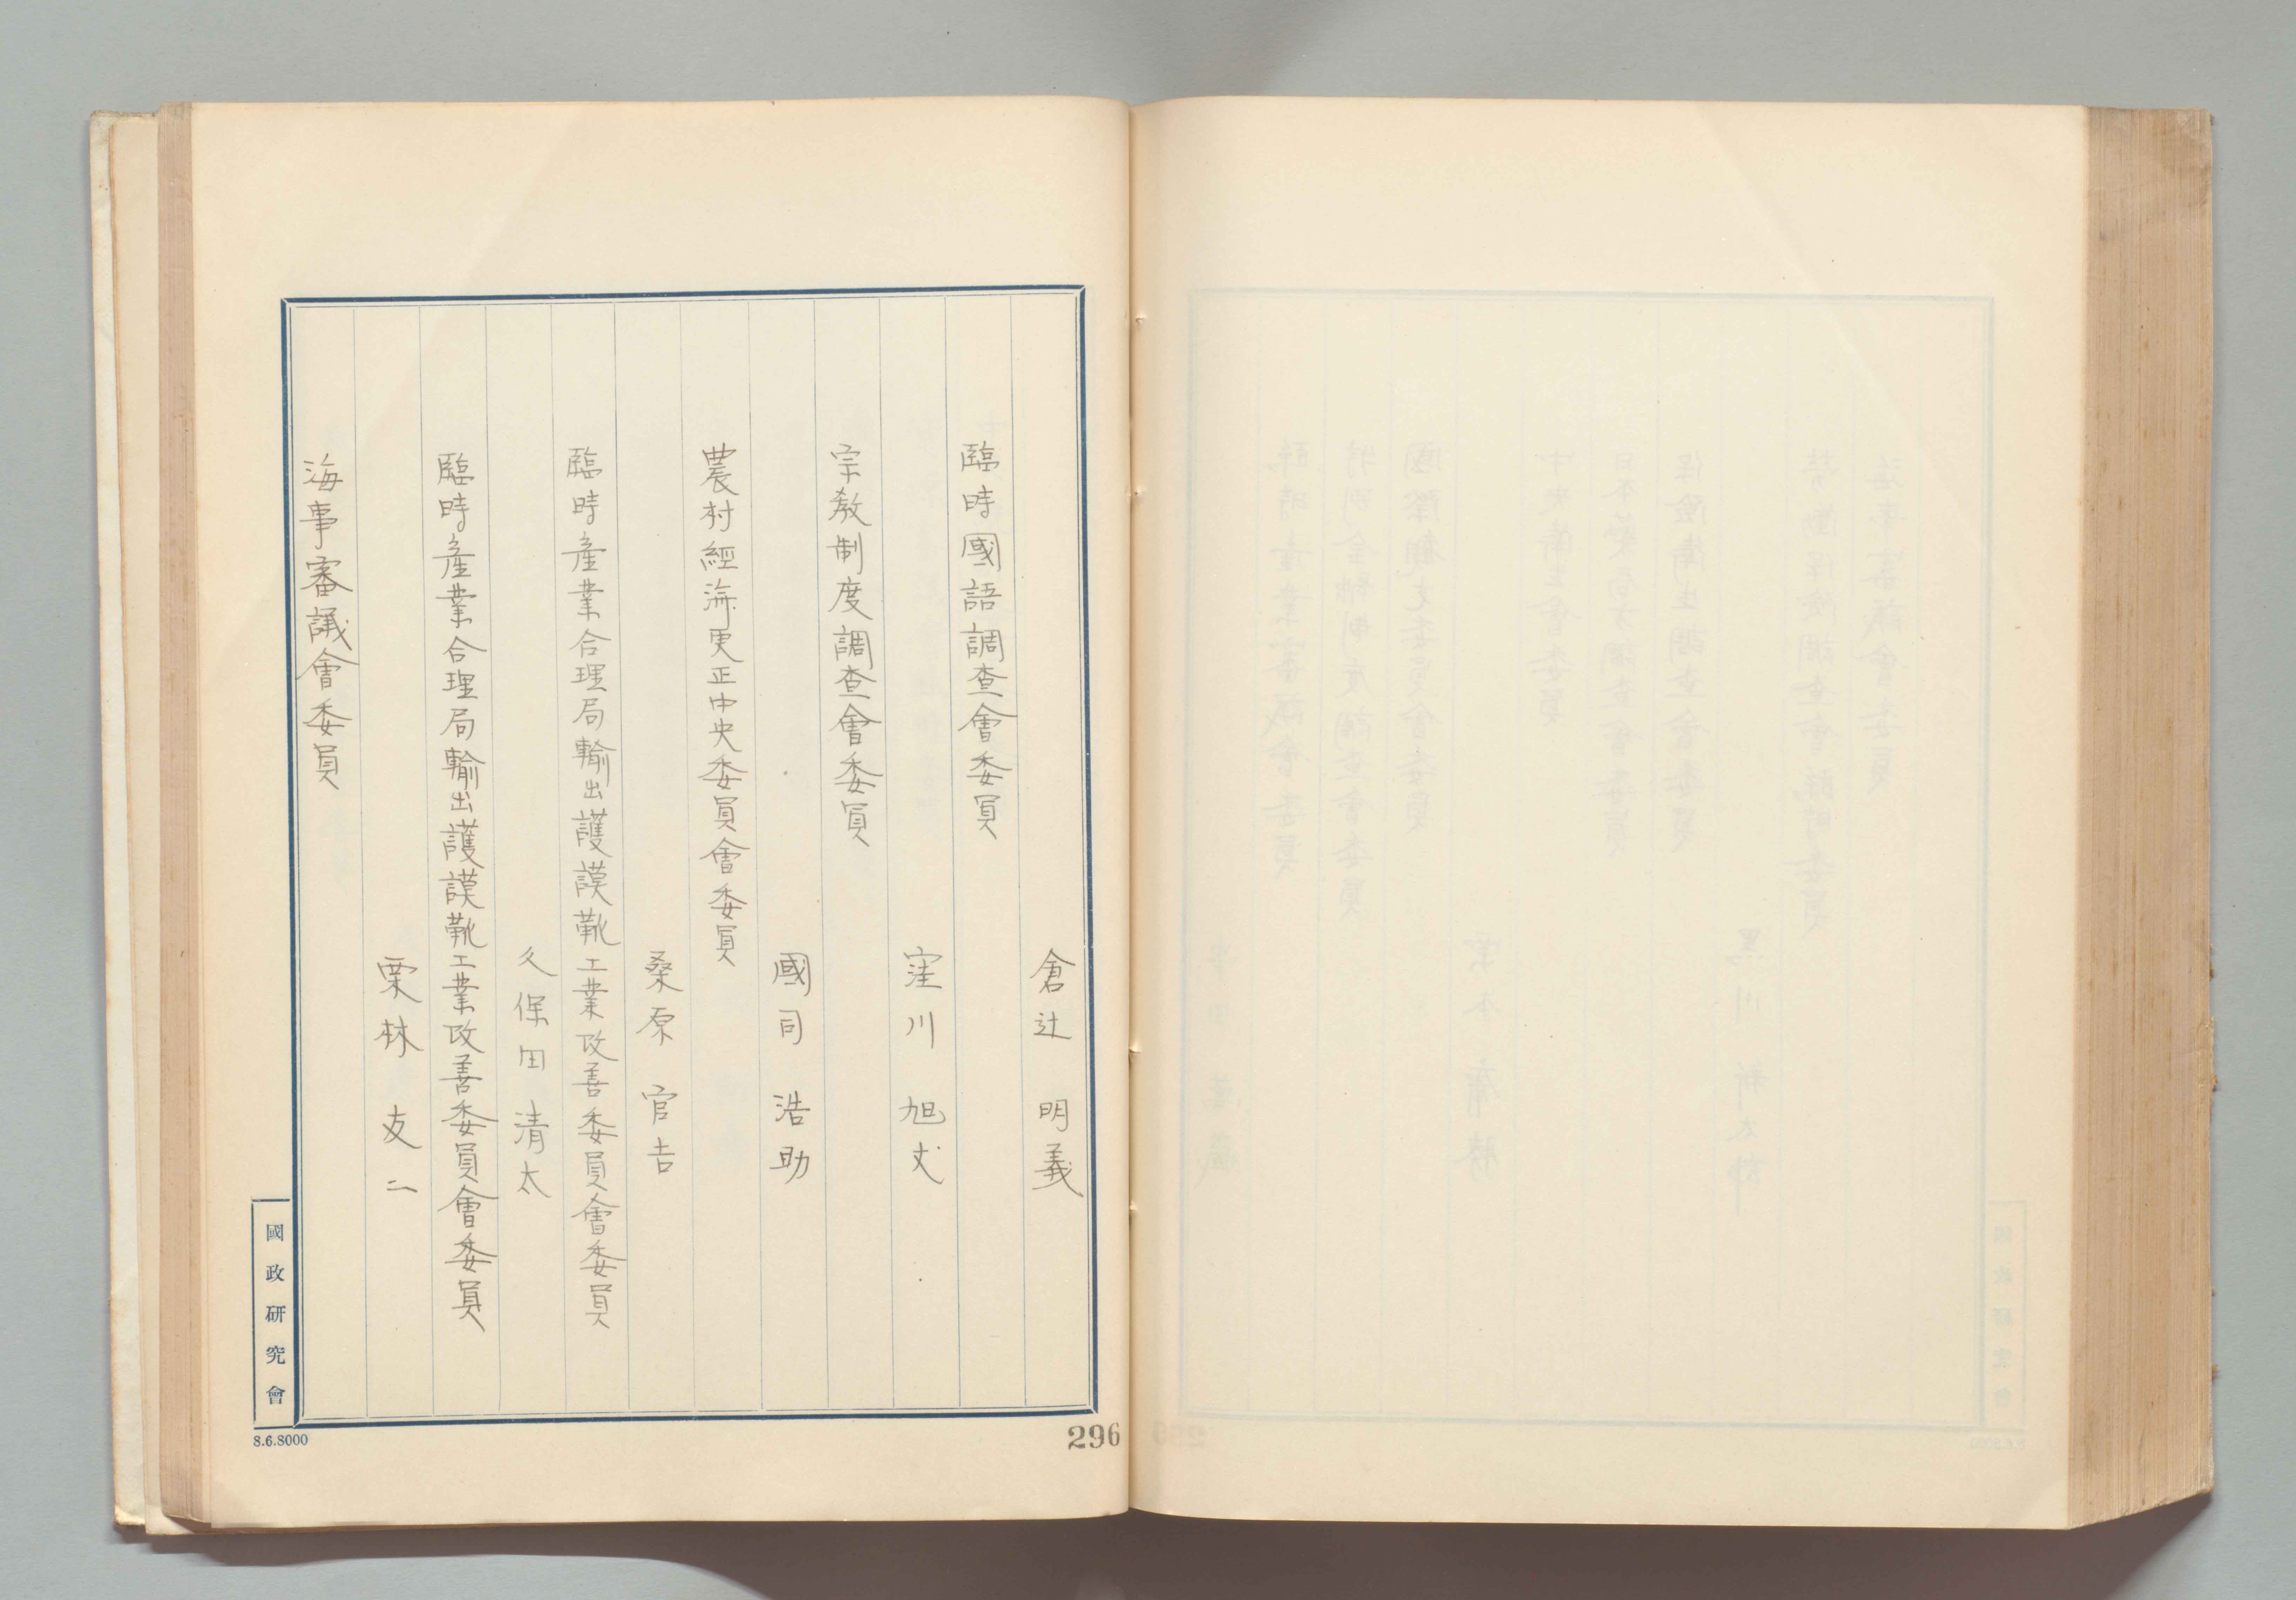 倉辻　明義
臨時國語調査會委員
窪川　旭丈
宗教制度調査會委員
國司　浩助
農村經済更正中央委員會委員
桑原　官吉
臨時產業合理局輸出護謨靴工業改善委員會委員
久保田清太
臨時產業合理局輸出護謨靴工業改善委員會委員
栗林　友二
海事審議會委員
國政研究會
8.6.8000
296